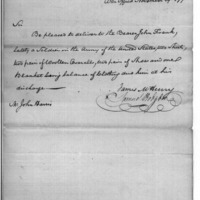 War Office November 29 179
Sir
Be pleased to deliver to the Bearer John Frank,
lately a Soldier in the Army of the United States, one Shirt,
two pair of Woollen Overalls, one pair of Shoes and one
Blanket being balance of Clothing due him at his
discharge —
James McHenry
Mr John Harris